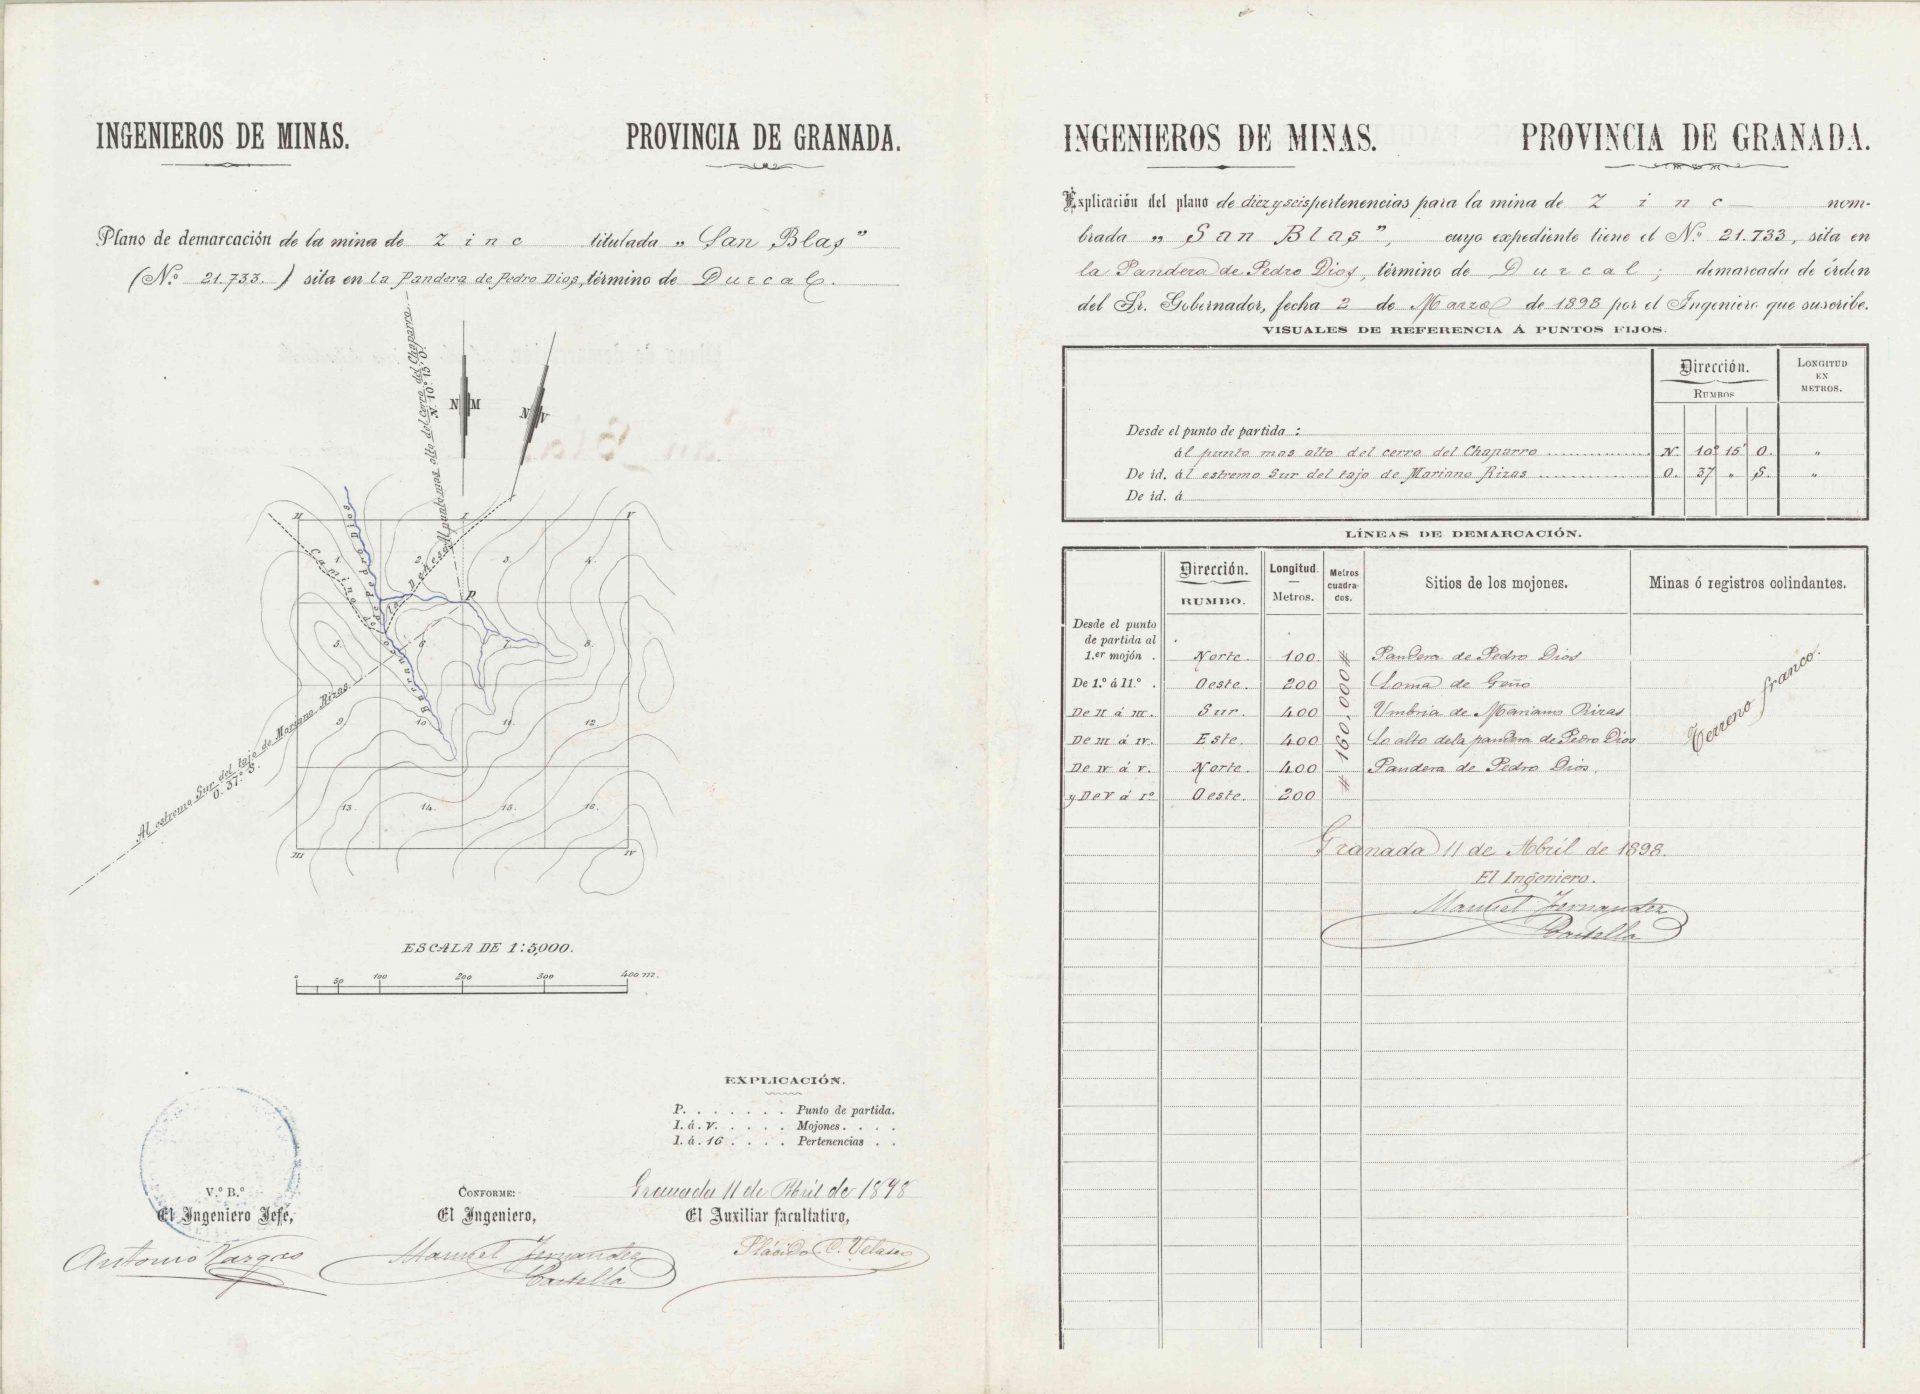 INGENIEROS DE MINAS. PROVINCIA DE GRANADA.
Plano de demarcación de la mina de Zinc titulada „San Blas”
(N.º 21.733.) sita en la Pandera de Pedro Dios, término de Durcal.
Al punto mas alto del cerro del Chaparro.
N. 10º 15' O.
N M
N V
II I V
Camino de la Dehesa
Barranco de Pedro Dios
P
1 2 3. 4.
5. 6. 7. 8.
9 10 11. 12
13. 14. 15. 16.
III IV
Al estremo Sur del tajo de Mariano Rizas
O. 37.º S.
ESCALA DE 1:5,000.
0 50 100 200 300 400 m.
EXPLICACIÓN.
P. . . . . . . . Punto de partida.
I. á. V. . . . . . Mojones. . . . .
1. á. 16 . . . . Pertenencias . .
Granada 11 de Abril de 1898
V.º B.º
El Ingeniero Jefe,
Antonio Vargas
CONFORME:
El Ingeniero,
Manuel Fernandez
Castella
El Auxiliar facultativo,
Plácido C. Velasco
INGENIEROS DE MINAS. PROVINCIA DE GRANADA.
Explicación del plano de diez y seis pertenencias para la mina de Zinc nom-
brada „San Blas”, cuyo expediente tiene el N.º 21.733, sita en
la Pandera de Pedro Dios, término de Durcal; demarcada de órden
del Sr. Gobernador, fecha 2 de Marzo de 1898 por el Ingeniero que suscribe.
VISUALES DE REFERENCIA Á PUNTOS FIJOS.
Dirección. LONGITUD EN METROS.
RUMBOS
Desde el punto de partida :
ál punto mas alto del cerro del Chaparro N. 10º 15' O. „
De id. ál estremo Sur del tajo de Mariano Rizas O. 37 „ S. „
De id. á
LÍNEAS DE DEMARCACIÓN.
Dirección. RUMBO. Longitud. Metros. Metros cuadrados. Sitios de los mojones. Minas ó registros colindantes.
Desde el punto
de partida al
1.er mojón . Norte. 100. Pandera de Pedro Dios
De 1.º á II.º . Oeste. 200 Loma de Geño
De II á III. Sur. 400 Umbria de Mariano Rizas
De III á IV. Este. 400 Lo alto de la pandera de Pedro Dios
De IV á V. Norte. 400 Pandera de Pedro Dios.
y De V á 1º Oeste. 200
# 160.000 #
Terreno franco.
Granada 11 de Abril de 1898.
El Ingeniero.
Manuel Fernandez
Castella